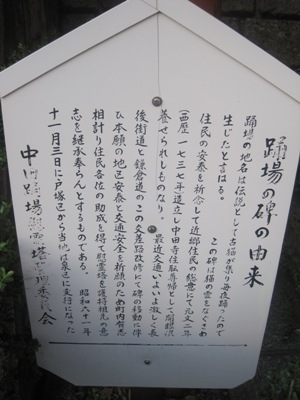 踊場の碑の由来
踊場の地名は伝説として古猫が集り毎夜踊ったので
生じたと言はる。 この碑は猫の霊をなぐさめ
住民の安泰を祈念して近郷住民の総意にて元文二年
(西歴一七三七年)造立し中田寺住職導師として開眼供
養せられしものなり。 最近交通いよいよ激しく長
後街道と鎌倉道のこの交差路改修にて碑の移動に伴
ひ本願の地区安泰と交通安全を祈願のため町内有志
相計り住民各位の助成を得て慰霊塔を護持祖先の意
志を継承奉らんとするものである。 昭和六十一年
十一月三日に戸塚区から当地は泉区に文行になった
中田踊場 塔 委員会